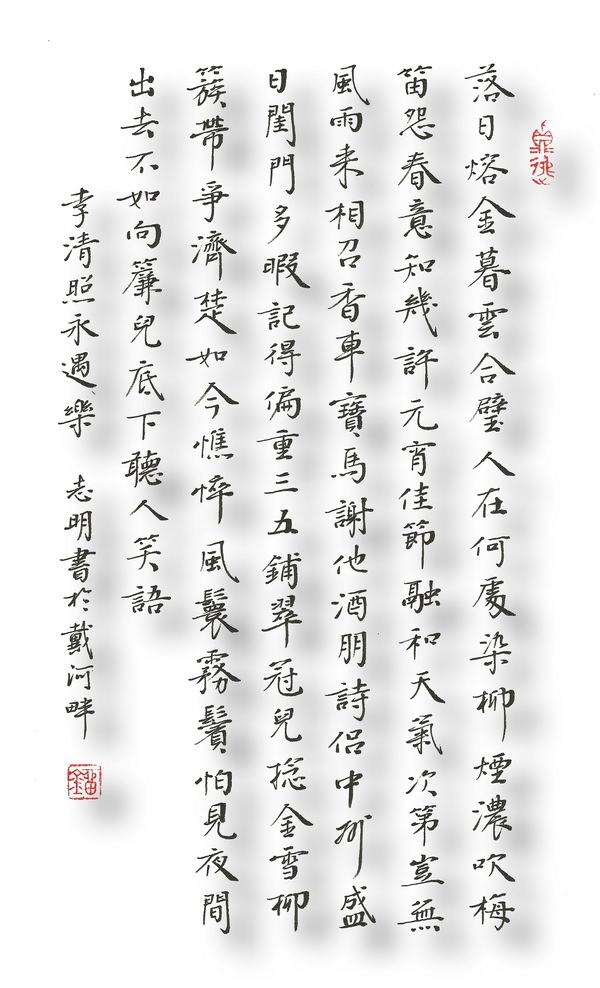 落日熔金暮雲合璧人在何處染柳煙濃吹梅
笛怨春意知幾許元宵佳節融和天氣次第豈無
風雨来相召香車寶馬謝他酒朋詩侣中州盛
日閨門多暇記得偏重三五鋪翠冠兒捻金雪柳
簇帶爭濟楚如今憔悴風鬟霧鬢怕見夜間
出去不如向簾兒底下聽人笑語
李清照永遇樂 志明書於戴河畔